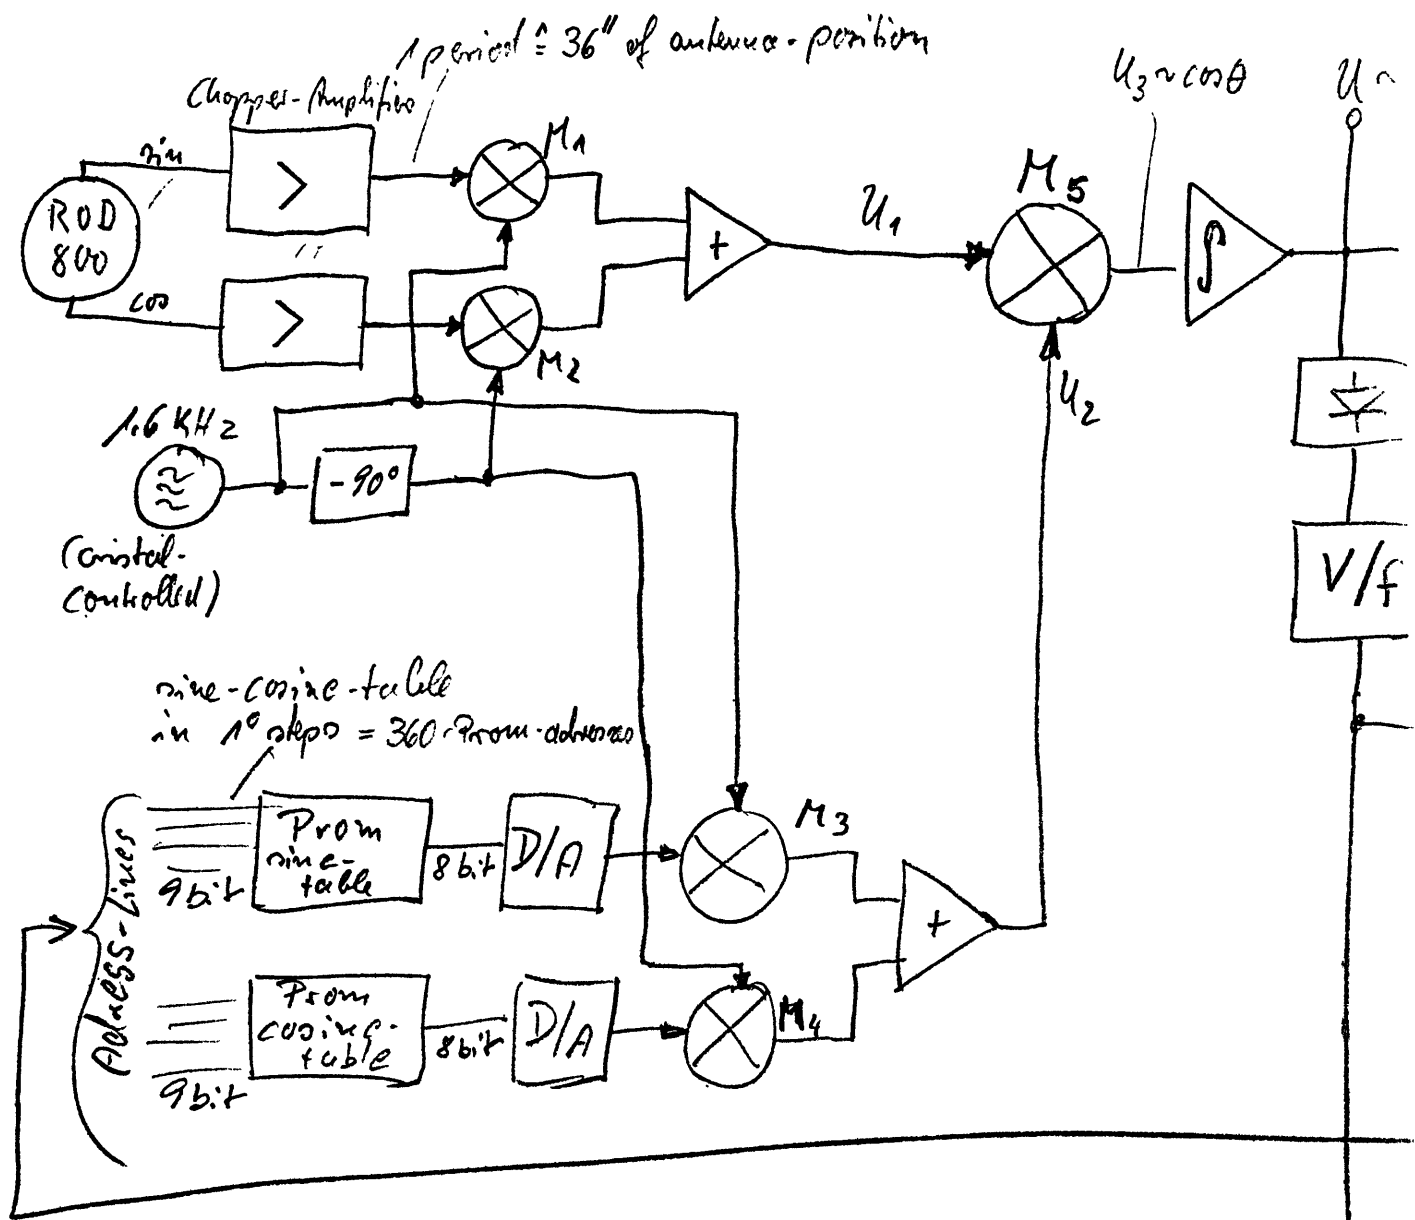 1 period ≙ 36" of antenna-position
Chopper-Amplifier
U3 ~ cosθ
U ~
sin
>
M1
ROD
800
M5
U1
+
∫
cos
>
M2
U2
1.6 KHz
-90°
(cristal-
controlled)
V/f
sine-cosine-table
in 1° steps = 360-Prom-adresses
Adress-Lines
9bit
Prom
sine-
table
8bit
D/A
M3
+
9bit
Prom
cosine-
table
8bit
D/A
M4